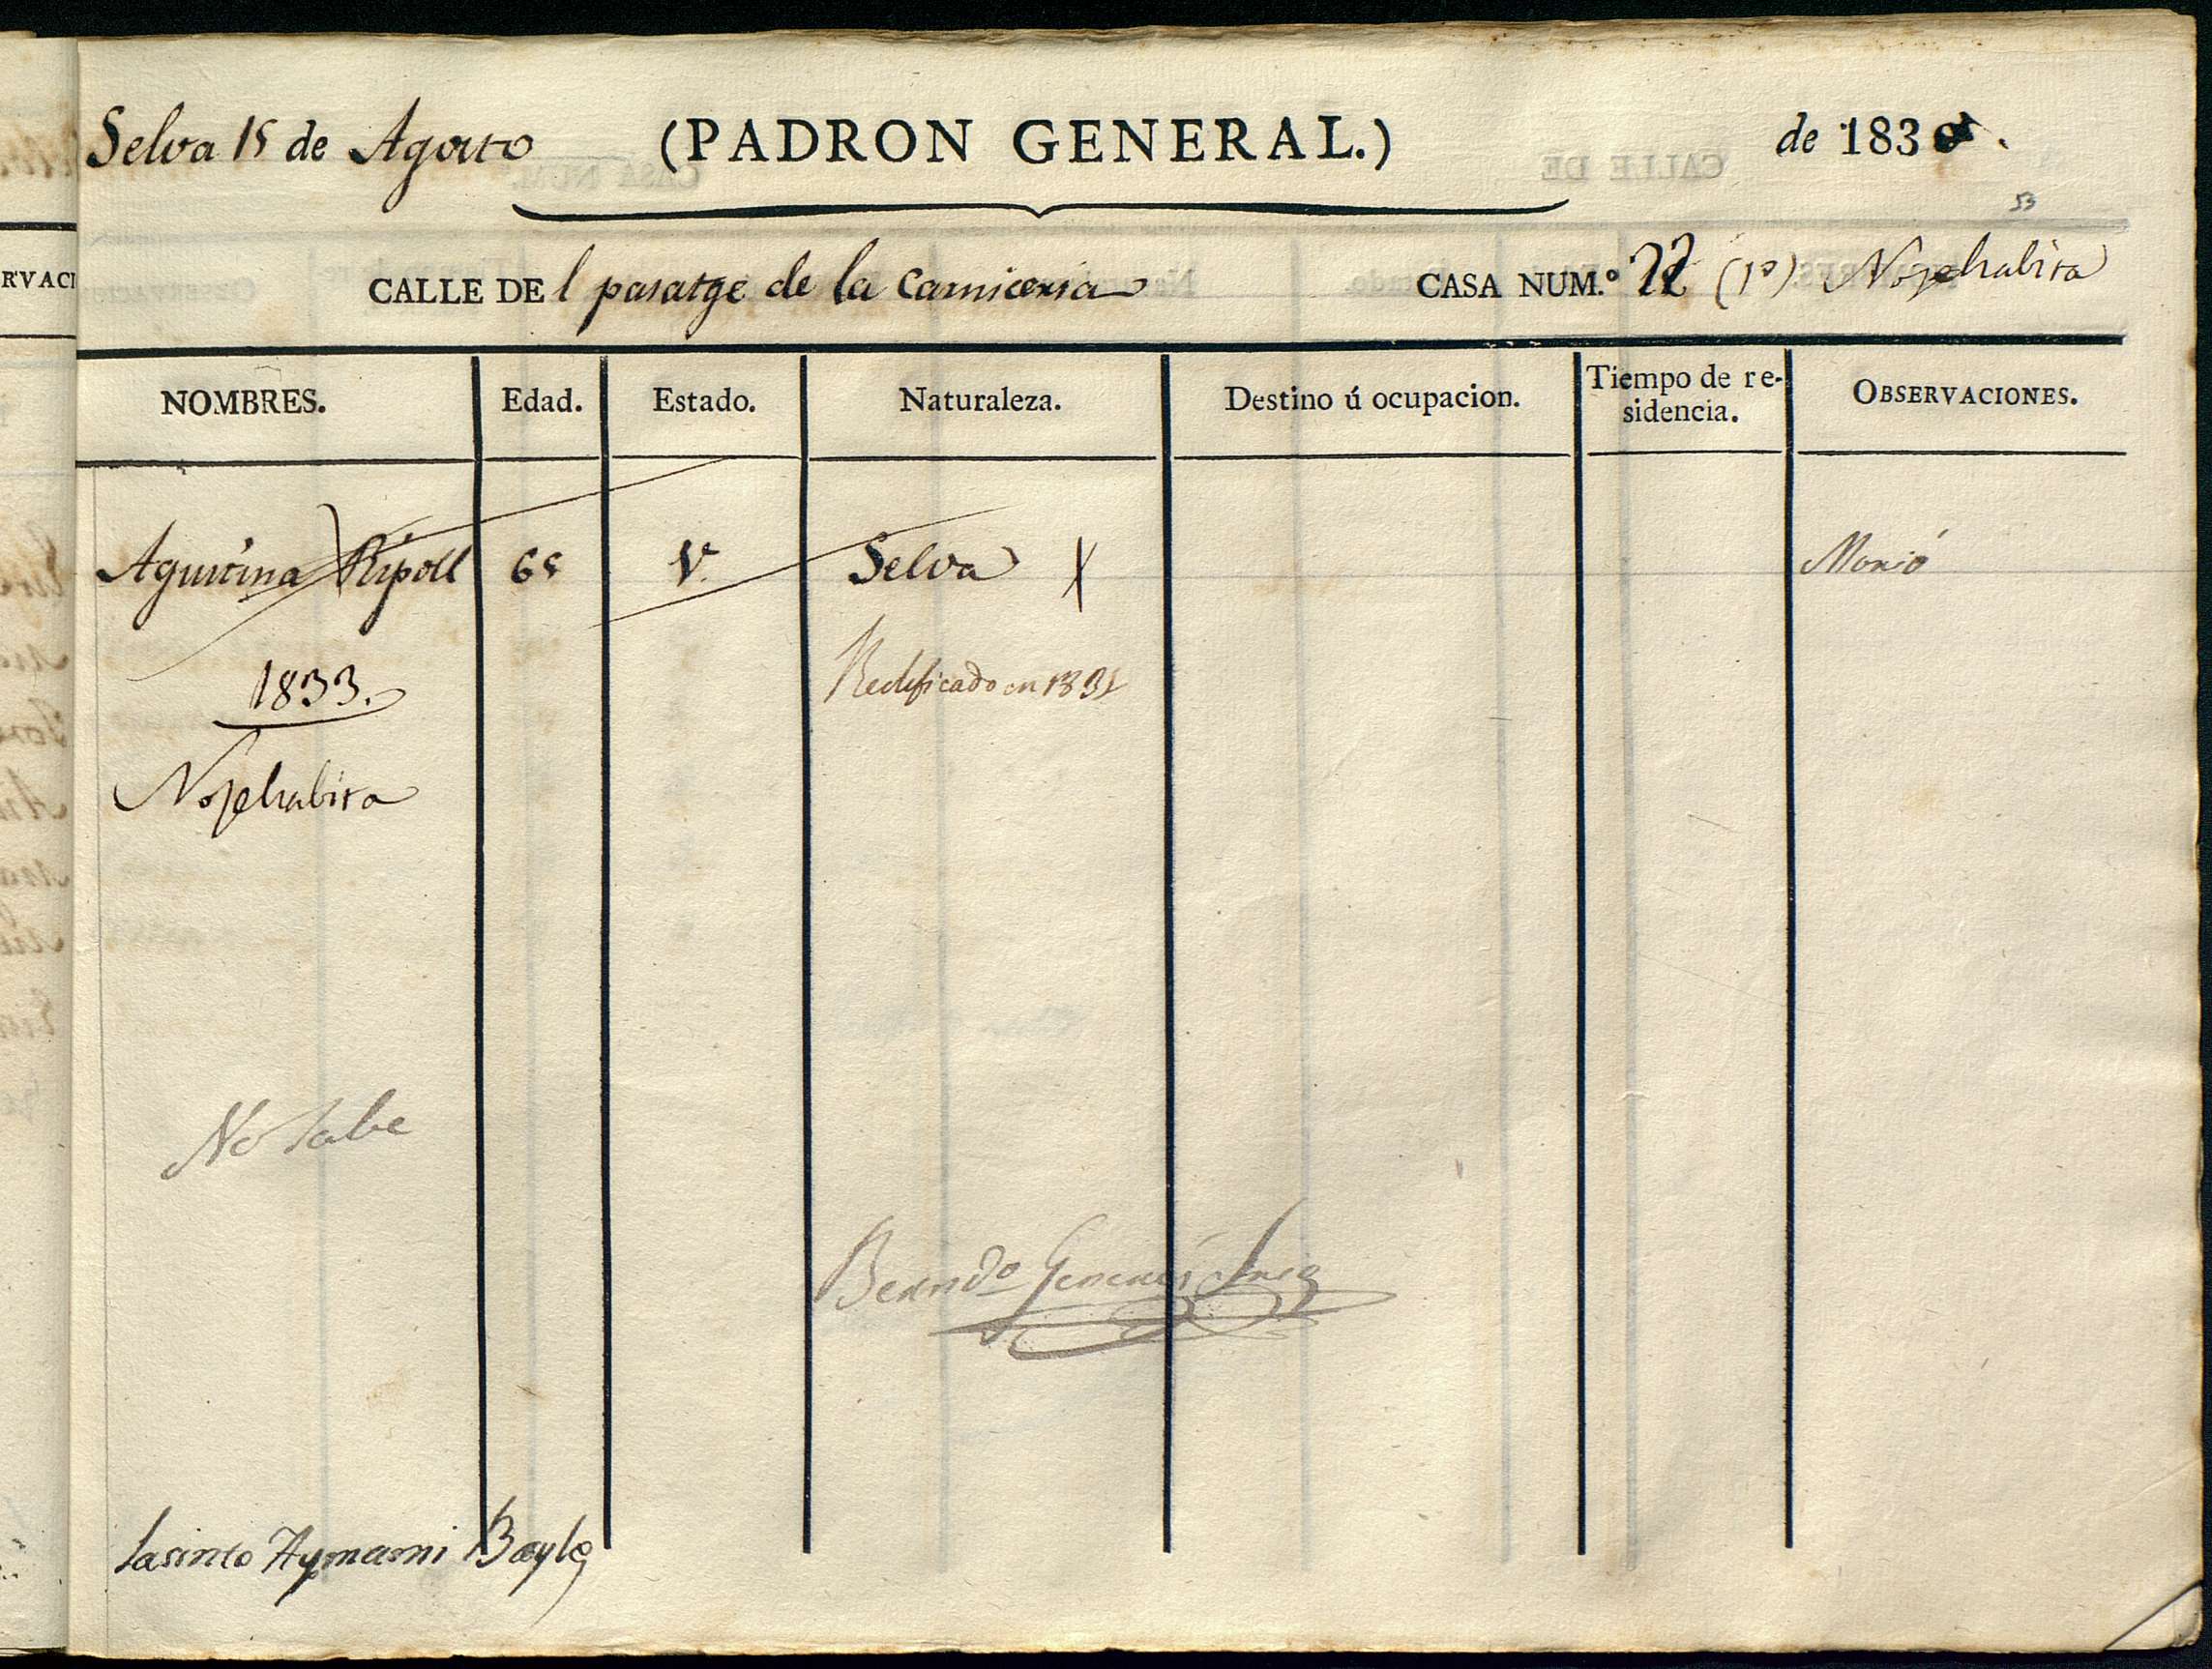 Selva 15 de Agosto (PADRON GENERAL.) de 183
53
CALLE DEL pasatge de la Carniceria CASA NUM.º 22 (1º) No se habita
NOMBRES. Edad. Estado. Naturaleza. Destino ú ocupacion. Tiempo de re-sidencia. OBSERVACIONES.
Agustina Ripoll 65 Vª Selva X Morió
1833. Rectificado en 1831
No se habita
No sabe
Berndo Genenés Juez
Jasinto Aymami Bayle
RVACI